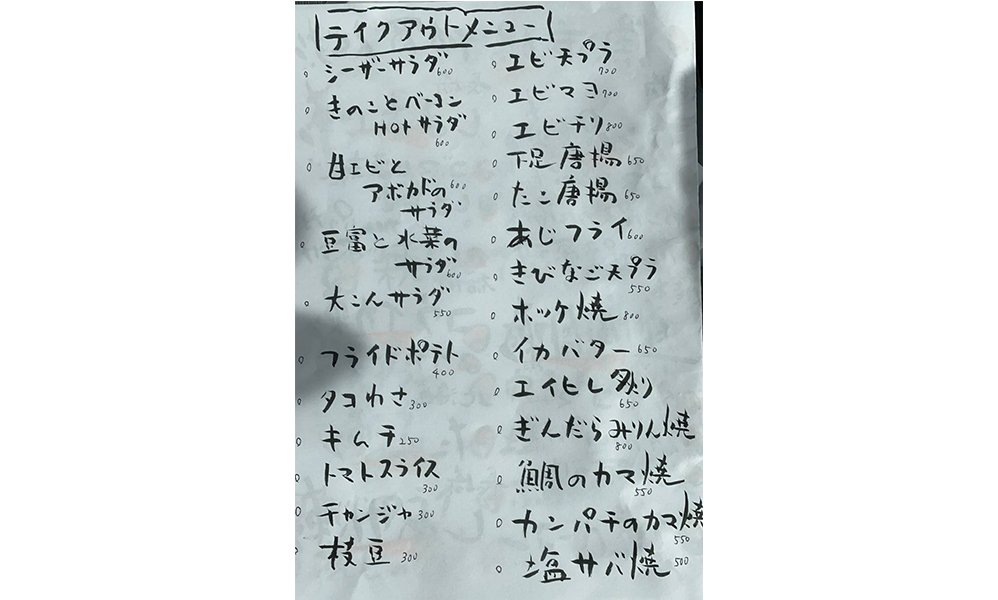 テイクアウトメニュー
シーザーサラダ 600
きのことベーコン
HOTサラダ
600
甘エビと
アボカドの 600
サラダ
豆富と水菜の
サラダ
600
大こんサラダ
550
フライドポテト
400
タコわさ 300
キムチ 250
トマトスライス
300
チャンジャ 300
枝豆 300
エビ天プラ
700
エビマヨ 700
エビチリ 800
下足唐揚 650
たこ唐揚 650
あじフライ 600
きびなご天プラ
550
ホッケ焼 800
イカバター 650
エイヒレ炙り
650
ぎんだらみりん焼
800
鯛のカマ焼
550
カンパチのカマ焼
550
塩サバ焼 500